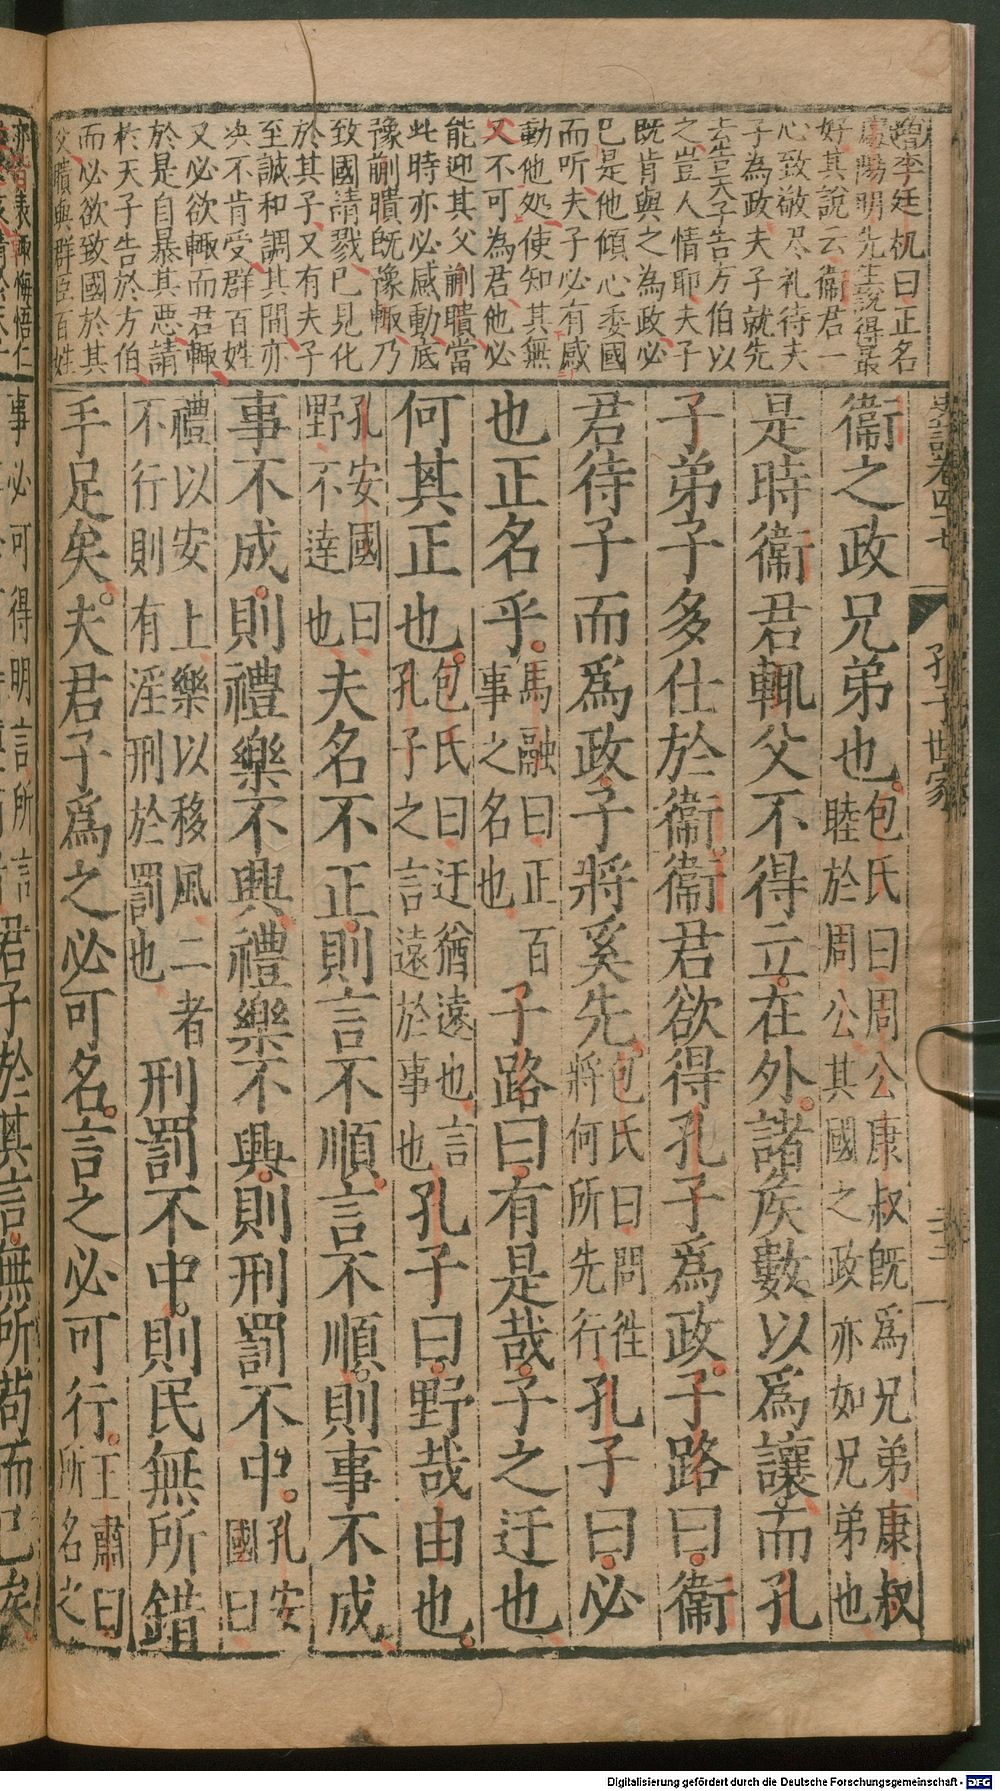 增李廷机曰正名
處陽明先生說得最
好其說云衞君一
心致敬尽礼待夫
子為政夫子就先
去豈夫子告方伯以
之豈人情耶夫子
既肯與之為政必
已是他傾心委國
而听夫子必有感
動他处使知其無
又不可為君他必
能迎其父蒯聵當
此時亦必感動底
豫蒯聵既豫輙乃
致國請戮已見化
於其子又有夫子
至誠和調其間亦
决不肯受群百姓
又必欲輙而君輙
於是自暴其悪請
於天子告於方伯
而必欲致國於其
父聵與群臣百姓
亦皆表輙悔悟仁
史記卷四十七 孔子世家
衞之政兄弟也包氏曰周公康叔既爲兄弟康叔
睦於周公其國之政亦如兄弟也
是時衞君輒父不得立在外諸侯數以爲讓而孔
子弟子多仕於衞衞君欲得孔子爲政子路曰衞
君待子而爲政子將奚先包氏曰問徃
將何所先行孔子曰必
也正名乎馬融曰正百
事之名也子路曰有是哉子之迂也
何其正也包氏曰迂猶遠也言
孔子之言遠於事也孔子曰野哉由也
孔安國曰
野不達也夫名不正則言不順言不順則事不成
事不成則禮樂不興禮樂不興則刑罰不中孔安
國曰
禮以安上樂以移風二者
不行則有淫刑於罰也刑罰不中則民無所錯
手足矣夫君子爲之必可名言之必可行王肅曰
所名之
事必可得明言所言
君子於其言無所苟而已矣
Digitalisierung gefördert durch die Deutsche Forschungsgemeinschaft - DFG